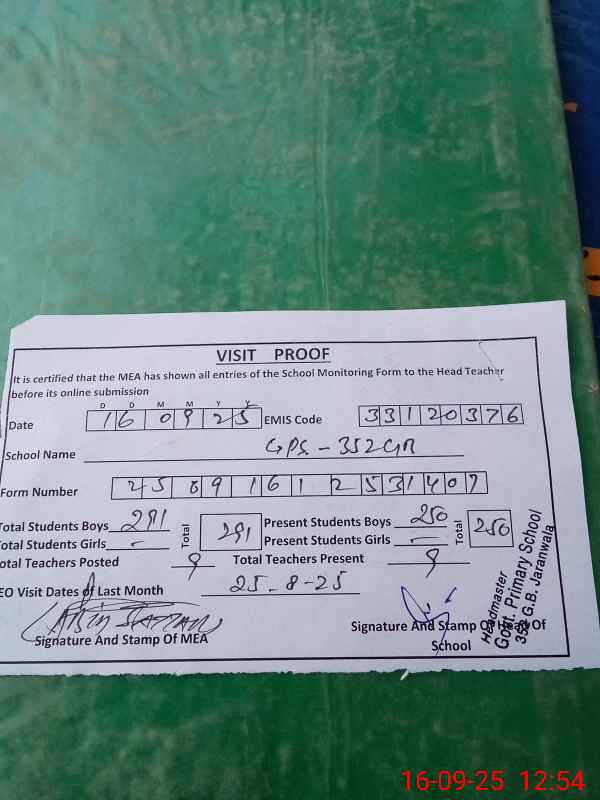 VISIT PROOF
It is certified that the MEA has shown all entries of the School Monitoring Form to the Head Teacher
before its online submission
D D M M Y Y
Date 16 09 25 EMIS Code 33120376
School Name GPS - 352GB
Form Number 25091612531407
Total Students Boys 291 Total 291 Present Students Boys 250 Total 250
Total Students Girls - Present Students Girls -
Total Teachers Posted 9 Total Teachers Present 9
EO Visit Dates of Last Month 25-8-25
Signature And Stamp Of MEA
Signature And Stamp Of Head Of
School
Headmaster
Govt. Primary School
352 G.B. Jaranwala
16-09-25 12:54